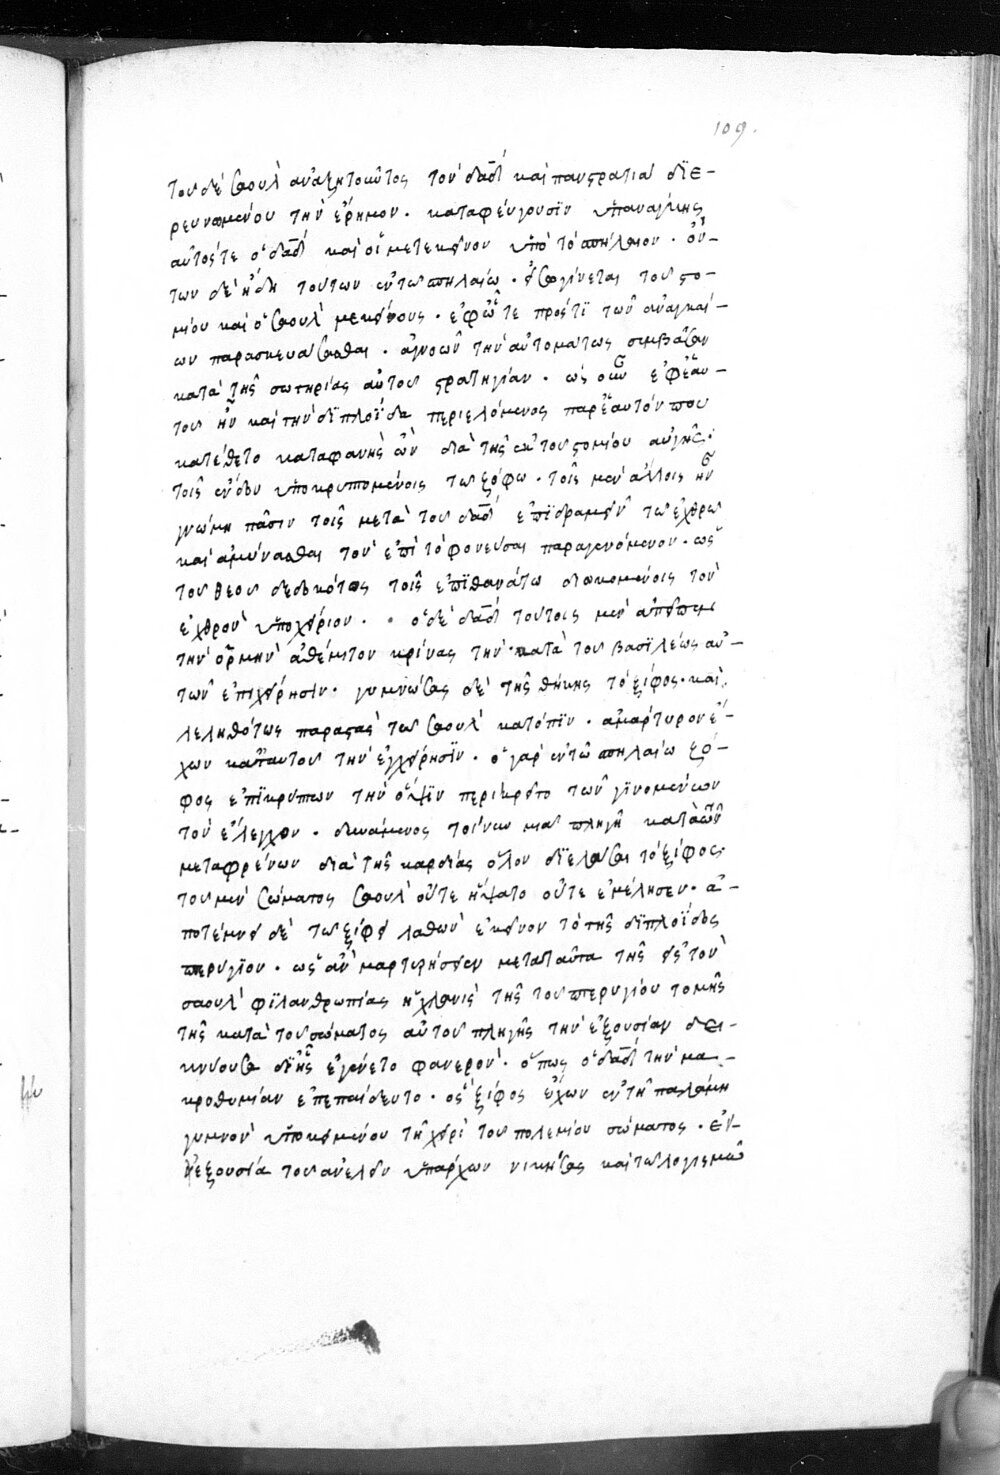 109.
του δὲ σαουλ ἀναζητοῦντος τὸν δαδ καὶ πανστρατιᾶ διε-
ρευνωμένου τὴν ἔρημον. καταφεύγουσιν ὑπανάγκης
αὐτός τε ὁ δαδ καὶ οἱ μετεκείνου ὑπὸ τὸ σπήλαιον. ὄν-
των δὲ ἤδη τούτων ἐν τω σπηλαίω. εἰσγίνεται του στο-
μίου καὶ ὁ σαουλ μεκείνους. ἐφῶτε πρός τι τῶν ἀναγκαί-
ων παρασκευάσασθαι. ἀγνοῶν τὴν αὐτομάτως συμβᾶσαν
κατὰ τῆς σωτηρίας αὐτου στρατηγίαν. ὡς οὖν ἐφεαυ-
του ἦν καὶ τὴν διπλοΐδα περιελόμενος παρεαυτόν που
κατέθετο καταφανὴς ὢν διὰ τῆς ἐκ του στομίου αὐγῆς.
τοῖς ἔνδον ὑποκρυπτομένοις τω ζόφω. τοῖς μὲν ἄλλοις ἦν
γνώμη πᾶσιν τοῖς μετὰ του δαδ ἐπιδραμεῖν τω ἐχθρω
καὶ ἀμύνασθαι τὸν ἐπὶ τὸ φονεῦσαι παραγενόμενον. ὡς
του θεου δεδωκότος τοῖς ἐπιθανάτω διωκομένοις τὸν
ἐχθρὸν ὑποχείριον. ὁ δὲ δαδ τούτοις μὲν ἀπεῖπε
τὴν ὁρμὴν ἀθέμιτον κρίνας τὴν κατὰ του βασιλέως αὐ-
τῶν ἐπιχείρησιν. γυμνώσας δὲ τῆς θήκης τὸ ξίφος. καὶ
λεληθότως παραστὰς τω σαουλ κατόπιν. ἀμάρτυρον ἔ-
χων καταυτου τὴν ἐγχείρησιν. ὁ γὰρ ἐν τῶ σπηλαίω ζό-
φος ἐπικρύπτων τὴν ὄψιν περιήρει τὸ τῶν γινομένων
τὸν ἔλεγχον. δυνάμενος τοίνυν μιᾶ πληγῆ κατὰ τῶν
μεταφρένων διὰ τῆς καρδίας ὅλον διελάσαι τὸ ξίφος.
του μὲν σώματος σαουλ οὔτε ἥψατο οὔτε ἐμέλησεν. ἀ-
ποτέμνει δὲ τω ξίφει λαθὼν ἐκεῖνον τὸ τῆς διπλοΐδος
πτερυγιον. ὡς ἂν μαρτυρήσειεν μεταταῦτα τῆς εἰς τὸν
σαουλ φιλανθρωπίας ἡ χλανὶς τῆς του πτερυγίου τομῆς
τῆς κατὰ του σώματος αὐτου πληγῆς τὴν ἐξουσίαν δει-
κνύουσα διῆς ἐγένετο φανερὸν. ὅπως ὁ δαδ τὴν μα-
κροθυμίαν ἐπεπαίδευτο. ὃς ξίφος ἔχων ἐν τῆ παλάμη
γυμνὸν ὑποκειμένου τῆ χειρὶ του πολεμίου σώματος. ἐν-
εξουσία του ἀνελεῖν ὑπάρχων νικήσας καὶ τω λογισμῶ